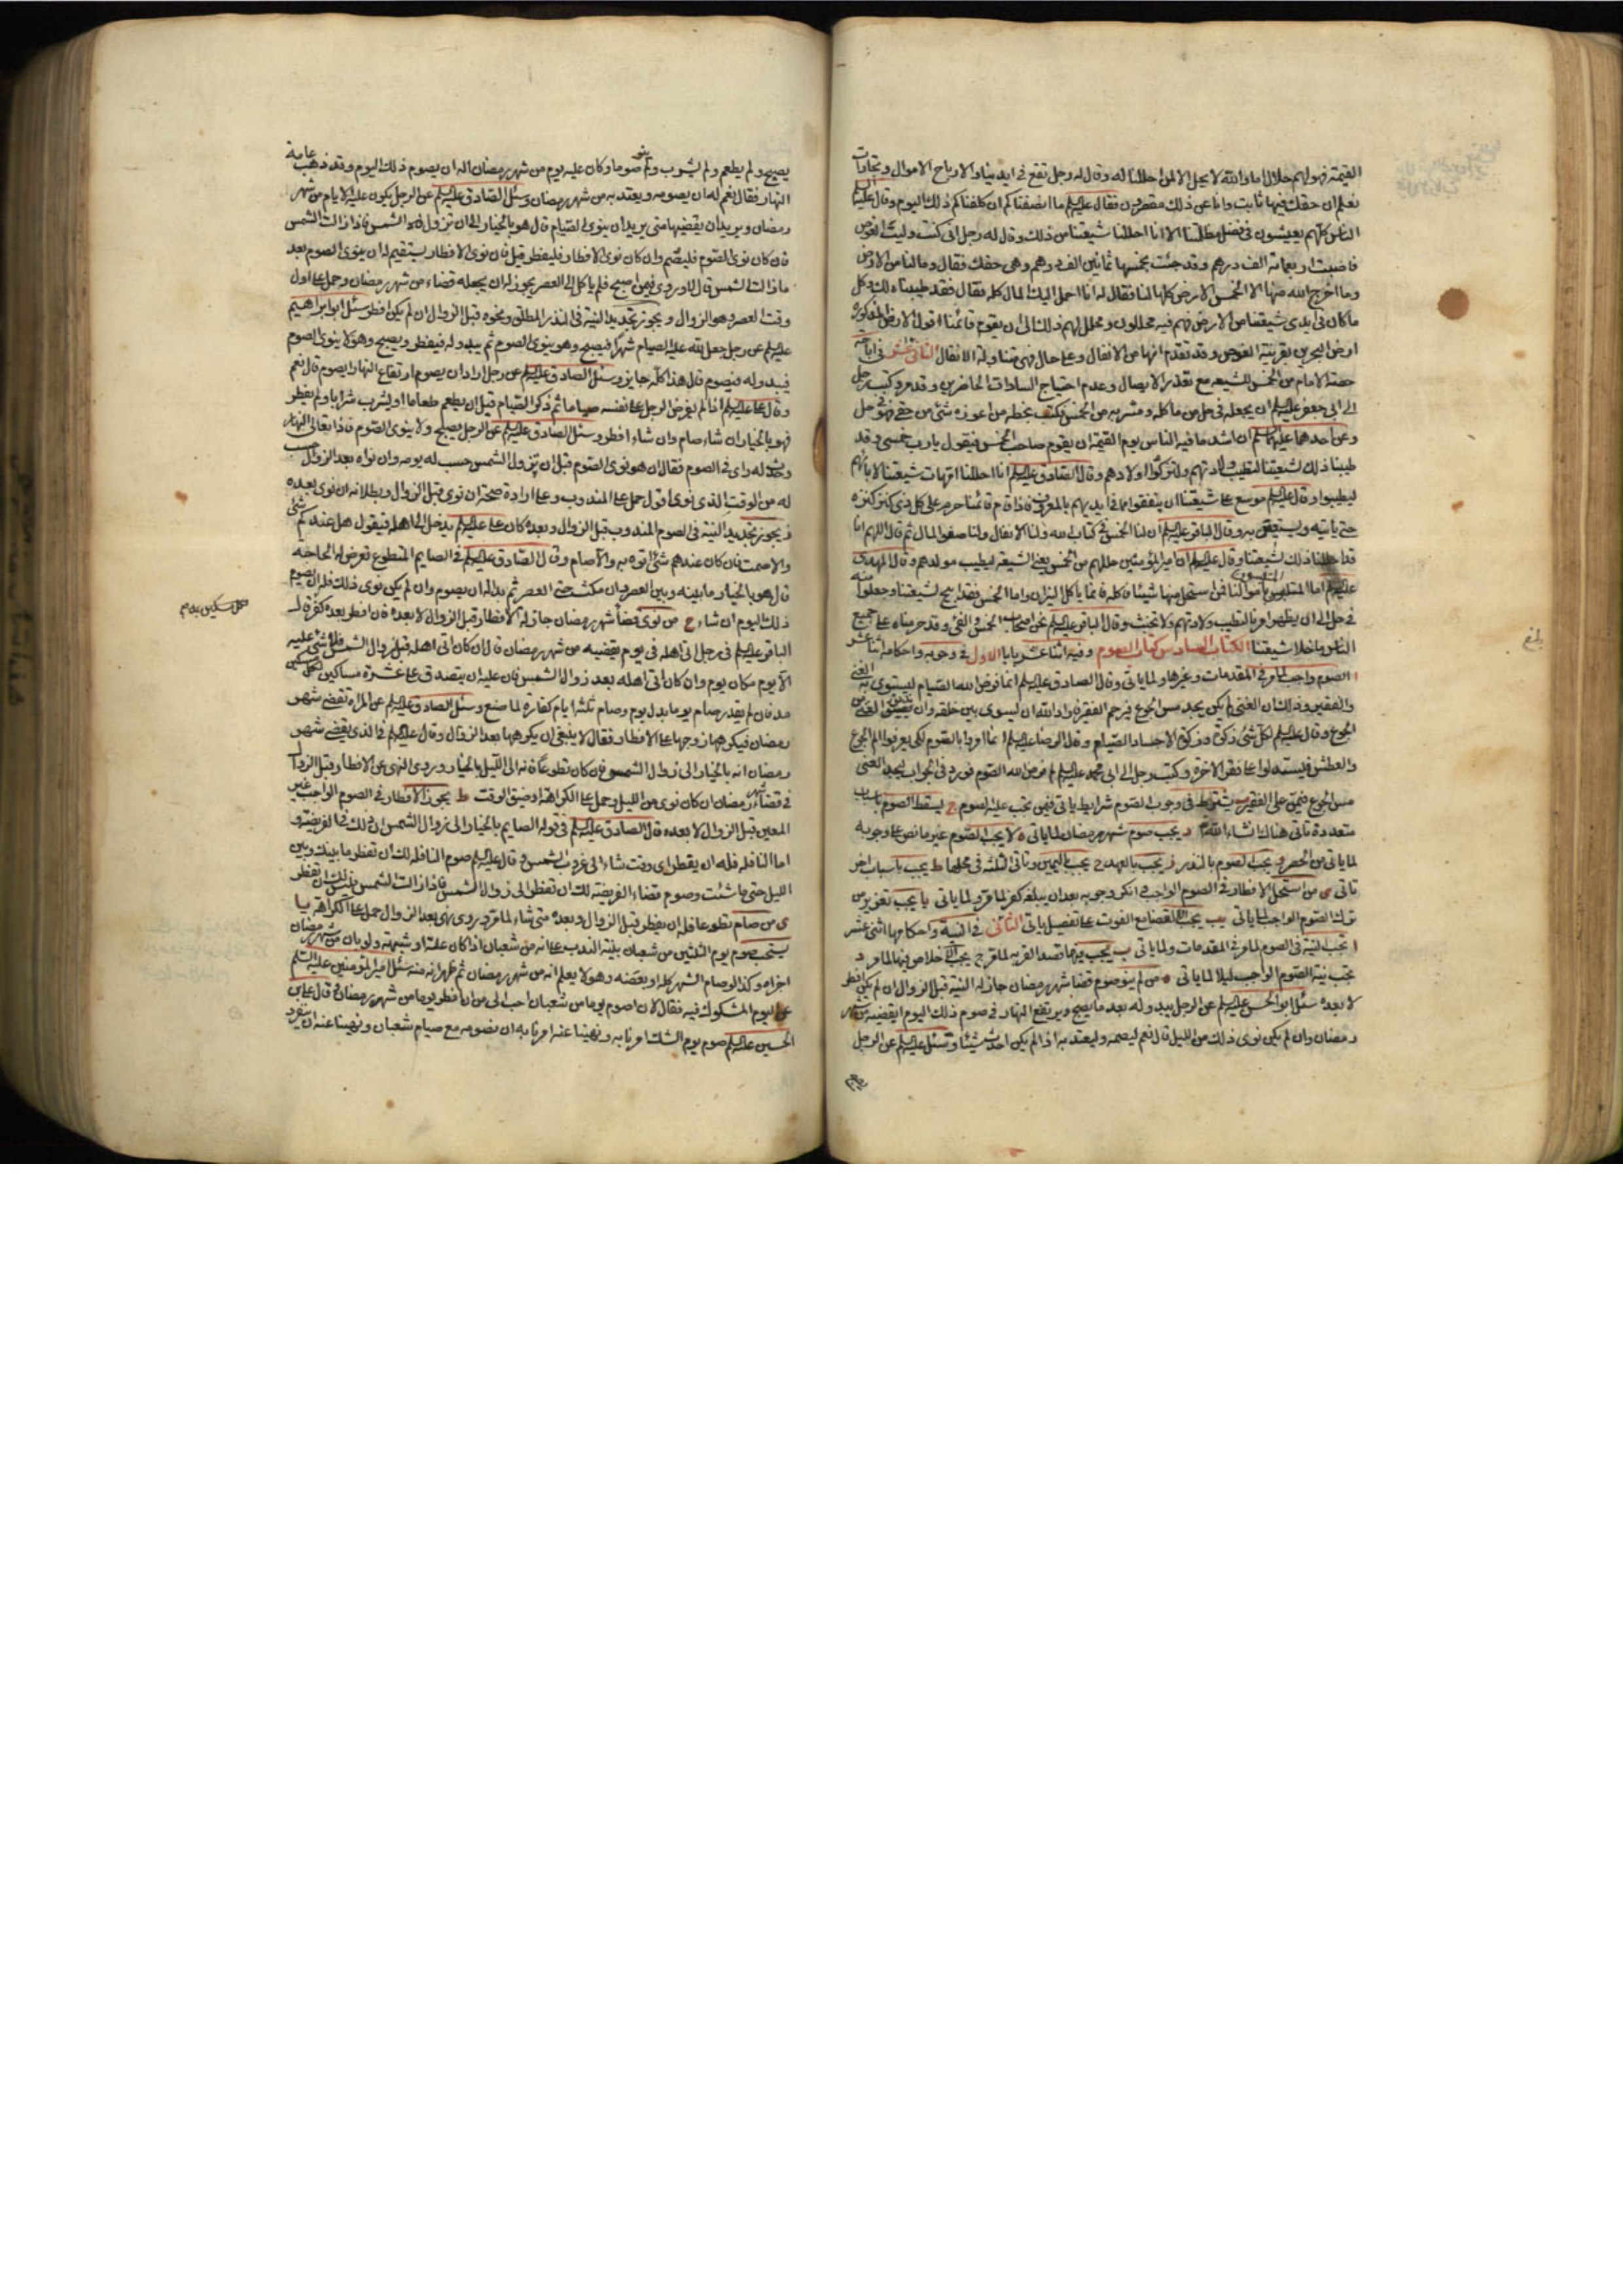 القيمة فهو لهم حلال اما والله لا يحل الا لمن احللنا له وقال له رجل تقع في ايدينا الارباح والاموال وتجارات
نعلم ان حقك فيها ثابت وانا عن ذلك مقصرون فقال عليه السلم ما انصفناكم ان كلفناكم ذلك اليوم وقال علينا
الناس كلهم يعيشون في فضل مظلمتنا الا انا احللنا شيعتنا من ذلك وقال له رجل اني كنت وليت الغوص
فاصبت اربعمائة الف درهم وقد جئت بخمسها ثمانين الف درهم وهي حقك فقال وما لنا من الارض
وما اخرج الله منها الا الخمس الارض كلها لنا فقال له انا احمل اليك المال كله فقال فقد طيبناه لك وكل
ما كان في ايدي شيعتنا من الارض فهم فيه محللون ومحلل لهم ذلك الى ان يقوم قائمنا اقول الارض المذكورة
ارض البحرين بقرينة الغوص وقد تقدم انها من الانفال وعلى حال فهي متناولة الانفال الثاني عشر في اباحة
حصة الامام من الخمس للشيعة مع تعذر الايصال وعدم احتياج السادات الحاضرين وقد مر وكتب رجل
الى ابي جعفر عليه السلم ان يجعله في حل من ماكله ومشربه من الخمس فكتب بخطه من اعوزه شئ من حقي فهو في حل
وعن احدهما عليهما السلم ان اشد ما فيه الناس يوم القيمة ان يقوم صاحب الخمس فيقول يا رب خمسي وقد
طيبنا ذلك لشيعتنا لتطيب ولادتهم ولتزكوا اولادهم وقال الصادق عليه السلم انا احللنا امهات شيعتنا لابائهم
ليطيبوا وقال عليه السلم موسع على شيعتنا ان ينفقوا مما في ايديهم بالمعروف فاذا قام قائمنا حرم على كل ذي كنز كنزه
حتى ياتيه به ويستعين به وقال الباقر عليه السلم ان لنا الخمس في كتاب الله ولنا الانفال ولنا صفو المال ثم قال اللهم انا
قد احللنا ذلك لشيعتنا وقال عليه السلم ان امير المؤمنين حللهم من الخمس يعني الشيعة ليطيب مولدهم وقال المهدي
عليه السلم اما المتلبسون باموالنا فمن استحل منها شيئا فاكله فانما ياكل النيران واما الخمس فقد ابيح لشيعتنا وجعلوا منه
في حل الى ان يظهر امرنا لتطيب ولادتهم ولا تخبث وقال الباقر عليه السلم نحن اصحاب الخمس والفئ وقد حرمناه على جميع
الناس ما خلا شيعتنا الكتاب السادس كتاب الصوم وفيه اثنا عشر بابا الاول في وجوبه واحكامه اثنا عشر
ا الصوم واجب لما مر في المقدمات وغيرها ولما ياتي وقال الصادق عليه السلم انما فرض الله الصيام ليستوي به الغني
والفقير وذلك ان الغني لم يكن يجد مس الجوع فيرحم الفقير فاراد الله ان يسوي بين خلقه وان يذيق الغني من
الجوع وقال عليه السلم لكل شئ زكوة وزكوة الاجساد الصيام وقال الرضا عليه السلم انما امروا بالصوم لكي يعرفوا الم الجوع
والعطش فليستدلوا على فقر الاخرة وكتب رجل الى ابي محمد عليه السلم لم فرض الله الصوم فورد في الجواب ليجد الغني
مس الجوع فيمن على الفقير ب يشترط في وجوب الصوم شرايط ياتي فيمن تجب عليه الصوم ج يسقط الصوم باسباب
متعددة تاتي هناك انشاء الله د يجب صوم شهر رمضان لما ياتي ه لا يجب الصوم غير ما نص على وجوبه
لما ياتي من الحصر و يجب الصوم بالنذر ز يجب بالعهد ح يجب باليمين وتاتي الثلثة في محلها ط يجب باسباب اخر
تاتي ى من استحل الافطار في الصوم الواجب انكر وجوبه بعد ان يبلغه كفر لما مر ولما ياتي يا يجب تعزير من
ترك الصوم الواجب لما ياتي يب يجب القضا مع الفوت على تفصيل ياتي الثاني في النية واحكامها اثني عشر
ا تجب النية في الصوم لما مر في المقدمات ولما ياتي ب يجب فيها قصد القربة لما مر ج يجب الاخلاص فيها لما مر د
تجب نية الصوم الواجب ليلا لما ياتي ه من لم ينو صوم قضا شهر رمضان جاز له النية قبل الزوال ان لم يكن افطر
لا بعده سئل ابو الحسن عليه السلم عن الرجل يبدو له بعد ما يصبح ويرتفع النهار في صوم ذلك اليوم ليقضيه من شهر
رمضان وان لم يكن نوى ذلك من الليل قال نعم ليصمه وليعتد به اذا لم يكن احدث شيئا وسئل عليه السلم عن الرجل
يصبح ولم يطعم ولم يشرب ولم ينو صوما وكان عليه يوم من شهر رمضان اله ان يصوم ذلك اليوم وقد ذهب عامة
النهار فقال نعم له ان يصومه ويعتد به من شهر رمضان وسئل الصادق عليه السلم عن الرجل يكون عليه الايام من شهر
رمضان ويريد ان يقضيها متى يريد ان ينوي الصيام قال هو بالخيار الى ان تزول الشمس فاذا زالت الشمس
فان كان نوى الصوم فليصم وان كان نوى الافطار فليفطر قيل فان نوى الافطار يستقيم له ان ينوي الصوم بعد
ما زالت الشمس قال لا وروي فيمن اصبح فلم ياكل الى العصر يجوز له ان يجعله قضاء من شهر رمضان وحمل على اول
وقت العصر وهو الزوال و يجوز تجديد النية في النذر المطلق ونحوه قبل الزوال ان لم يكن افطر سئل ابو ابراهيم
عليه السلم عن رجل جعل لله عليه الصيام شهرا فيصبح وهو ينوي الصوم ثم يبدو له فيفطر ويصبح وهو لا ينوي الصوم
فيبدو له فيصوم قال هذا كله جايز وسئل الصادق عليه السلم عن رجل اراد ان يصوم ارتفاع النهار ايصوم قال نعم
وقال علي عليه السلم اذا لم يفرض الرجل على نفسه صياما ثم ذكر الصيام قبل ان يطعم طعاما او يشرب شرابا ولم يفطر
فهو بالخيار ان شاء صام وان شاء افطر وسئل الصادق عليه السلم عن الرجل يصبح ولا ينوي الصوم فاذا تعالى النهار
وحدث له راى في الصوم فقال ان هو نوى الصوم قبل ان تزول الشمس حسب له يومه وان نواه بعد الزوال حسب
له من الوقت الذي نوى اقول حمل على المندوب وعلى ارادة صحته ان نوى قبل الزوال وبطلانه ان نوى بعده
ز يجوز تجديد النية في الصوم المندوب قبل الزوال وبعده كان علي عليه السلم يدخل الى اهله فيقول هل عندكم شئ
والا صمت فان كان عندهم شئ اتوه به والا صام وقال الصادق عليه السلم في الصايم المتطوع تعرض له الحاجة
قال هو بالخيار ما بينه وبين العصر وان مكث حتى العصر ثم بدا له ان يصوم وان لم يكن نوى ذلك فله ان يصوم
ذلك اليوم ان شاء ح من نوى قضا شهر رمضان جاز له الافطار قبل الزوال لا بعده فان افطر بعده كفر قال
الباقر عليه السلم في رجل اتى اهله في يوم يقضيه من شهر رمضان قال ان كان اتى اهله قبل زوال الشمس فلا شئ عليه
الا يوم مكان يوم وان كان اتى اهله بعد زوال الشمس فان عليه ان يتصدق على عشرة مساكين لكل مسكين
مد فان لم يقدر صام يوما بدل يوم وصام ثلثة ايام كفارة لما صنع وسئل الصادق عليه السلم عن المراة تقضي شهر
رمضان فيكرهها زوجها على الافطار فقال لا ينبغي ان يكرهها بعد الزوال وقال عليه السلم في الذي يقضي شهر
رمضان انه بالخيار الى زوال الشمس فان كان تطوعا فانه الى الليل بالخيار وروي النهي عن الافطار قبل الزوال
في قضاء رمضان ان كان نوى من الليل وحمل على الكراهة او ضيق الوقت ط يجوز الافطار في الصوم الواجب غير
المعين قبل الزوال لا بعده قال الصادق عليه السلم في قوله الصايم بالخيار الى زوال الشمس ان ذلك في الفريضة و
اما النافلة فله ان يفطر اى وقت شاء الى غروب الشمس وقال عليه السلم صوم النافلة لك ان تفطر ما بينك وبين
الليل متى ما شئت وصوم قضاء الفريضة لك ان تفطر الى زوال الشمس فاذا زالت الشمس فليس لك ان تفطر
ى من صام تطوعا فله ان يفطر قبل الزوال وبعده متى شاء لما مر وروي نهي بعد الزوال حمل على الكراهة يا
يستحب صوم يوم الثلثين من شعبان بنية الندب على انه من شعبان اذا كان علة او شبهة ولو بان من شهر رمضان
اجزاه وكذا لو صام الشهر كله او بعضه وهو لا يعلم انه من شهر رمضان ثم ظهر انه منه سئل امير المؤمنين عليه السلم
عن اليوم المشكوك فيه فقال لان اصوم يوما من شعبان احب الى من ان افطر يوما من شهر رمضان وقال علي بن
الحسين عليه السلم صوم يوم الشك امرنا به ونهينا عنه امرنا به ان نصومه مع صيام شعبان ونهينا عنه ان ينفرد